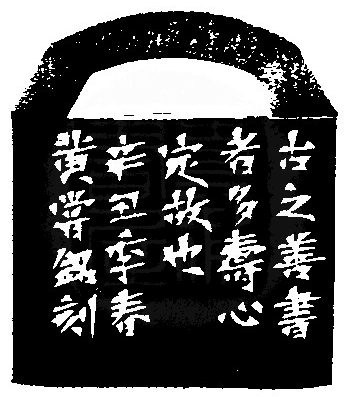 古之善書
者多壽心
定故也
辛丑季春
黃嘗銘刻